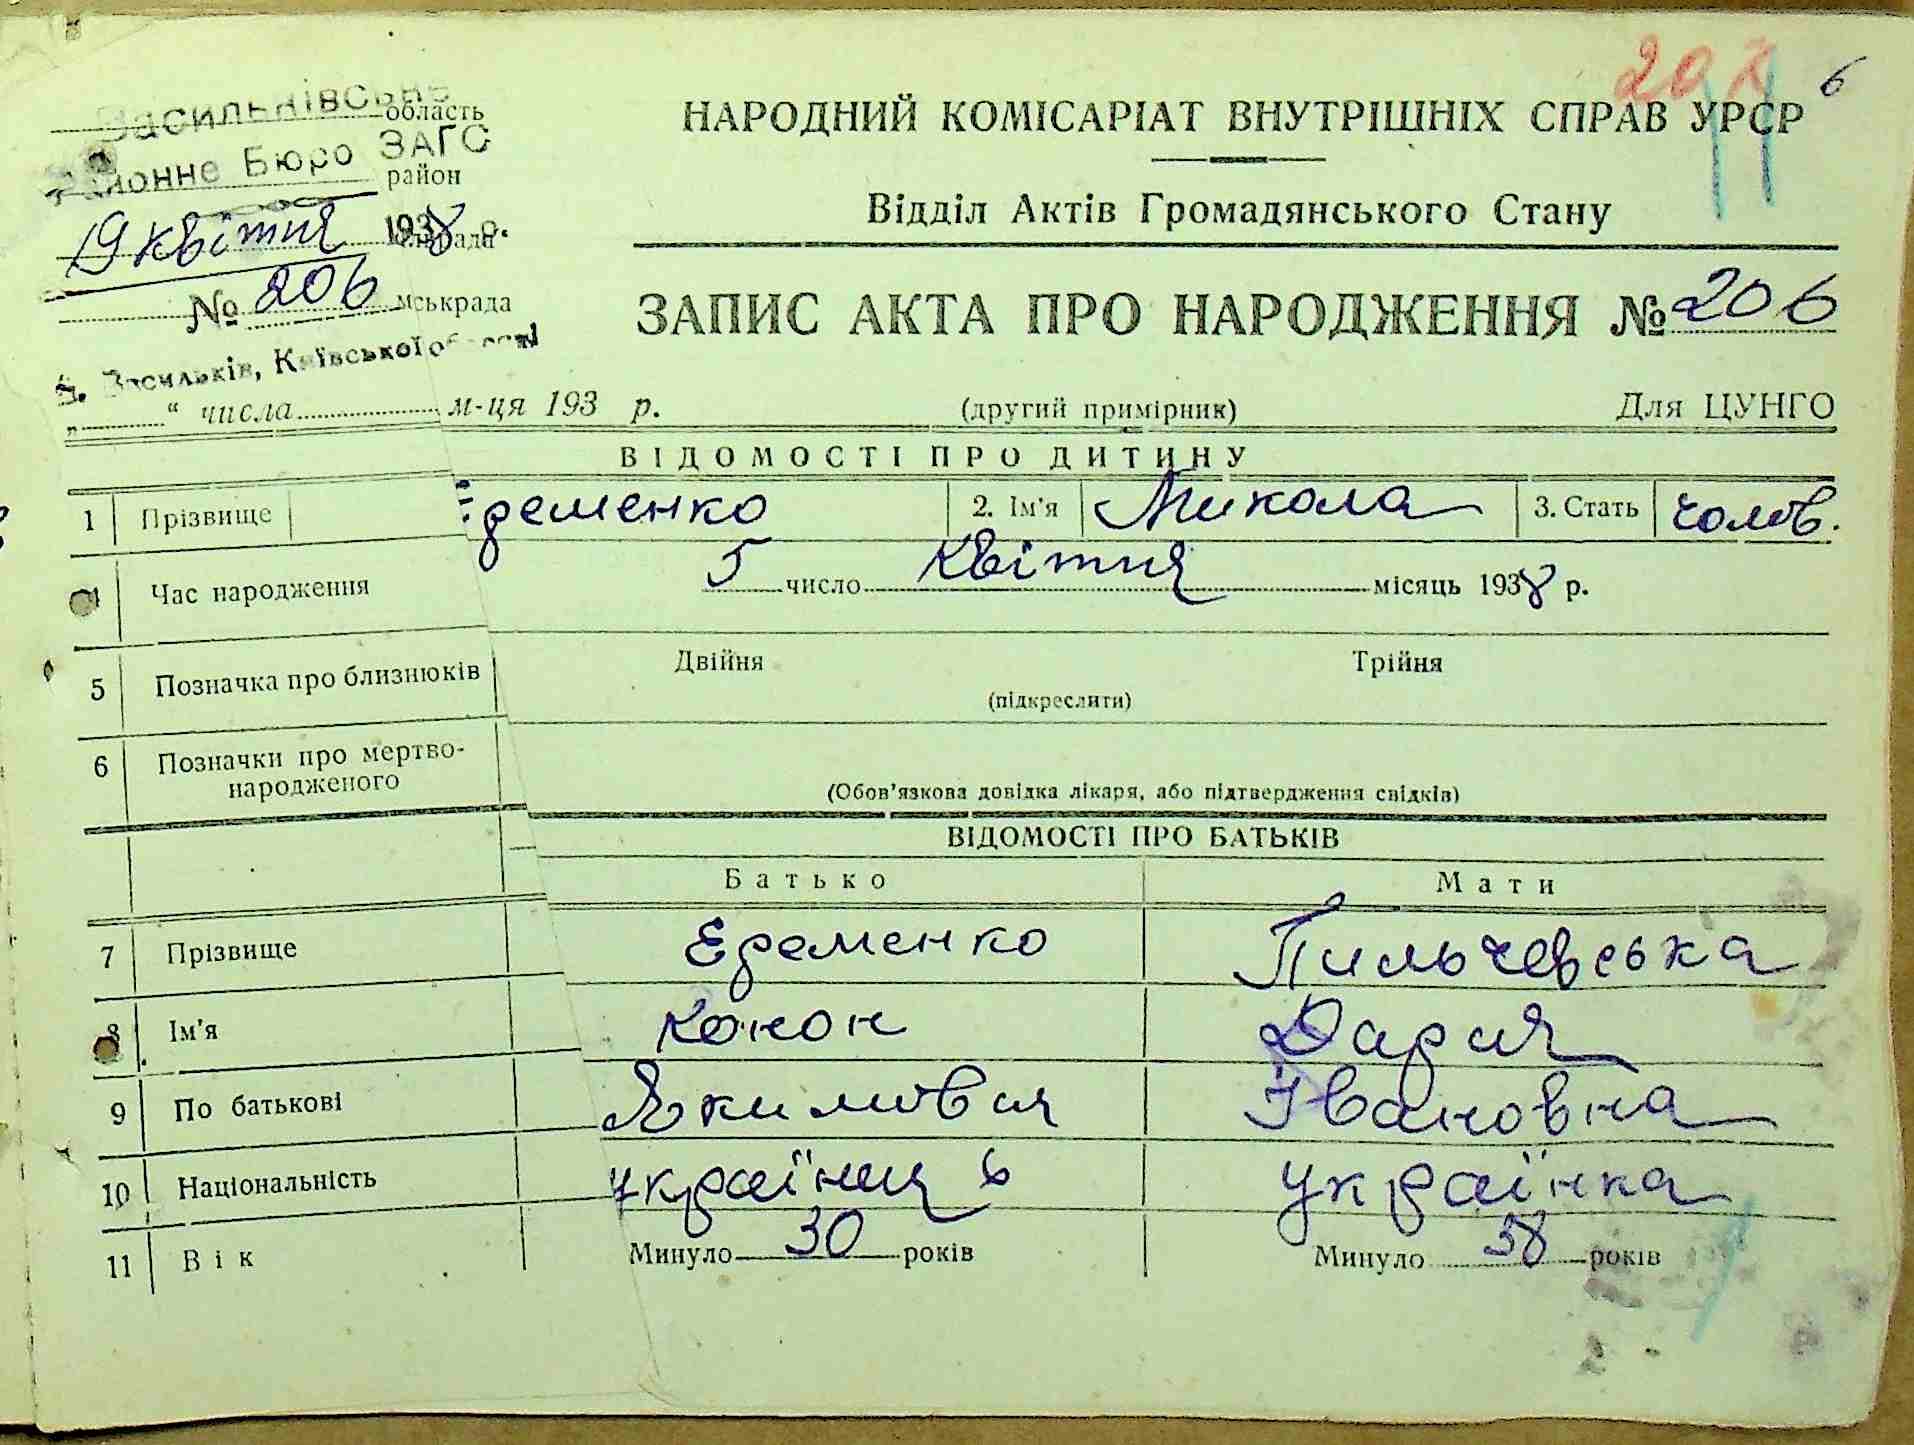 202 6
Васильківське область
Районне Бюро ЗАГС район
19 квітня 1938 р.
№ 206 міськрада
м. Васильків, Київської області
„ “ числа м-ця 193 р.
НАРОДНИЙ КОМІСАРІАТ ВНУТРІШНІХ СПРАВ УРСР
Відділ Актів Громадянського Стану
ЗАПИС АКТА ПРО НАРОДЖЕННЯ № 206
(другий примірник) Для ЦУНГО
ВІДОМОСТІ ПРО ДИТИНУ
1 Прізвище Єременко 2. Ім'я Микола 3. Стать чолов.
4 Час народження 5 число квітня місяць 1938 р.
5 Позначка про близнюків Двійня Трійня
(підкреслити)
6 Позначки про мертво-
народженого
(Обов'язкова довідка лікаря, або підтвердження свідків)
ВІДОМОСТІ ПРО БАТЬКІВ
Батько Мати
7 Прізвище Єременко Пильчевська
8 Ім'я Конон Дарія
9 По батькові Якимовия Івановна
10 Національність українць українка
11 Вік Минуло 30 років Минуло 38 років